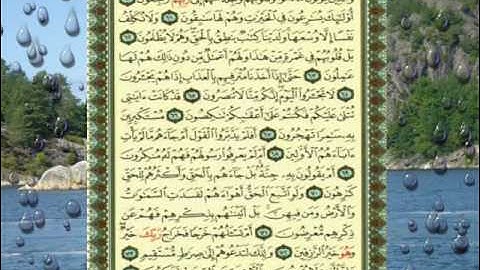 أُوْلَٰٓئِكَ يُسَٰرِعُونَ فِى ٱلْخَيْرَٰتِ وَهُمْ لَهَا سَٰبِقُونَ ٦١ وَلَا نُكَلِّفُ
نَفْسًا إِلَّا وُسْعَهَا وَلَدَيْنَا كِتَٰبٌ يَنطِقُ بِٱلْحَقِّ وَهُمْ لَا يُظْلَمُونَ ٦٢
بَلْ قُلُوبُهُمْ فِى غَمْرَةٍ مِّنْ هَٰذَا وَلَهُمْ أَعْمَٰلٌ مِّن دُونِ ذَٰلِكَ هُمْ لَهَا
عَٰمِلُونَ ٦٣ حَتَّىٰٓ إِذَآ أَخَذْنَا مُتْرَفِيهِم بِٱلْعَذَابِ إِذَا هُمْ يَجْـَٔرُونَ
٦٤ لَا تَجْـَٔرُواْ ٱلْيَوْمَ إِنَّكُم مِّنَّا لَا تُنصَرُونَ ٦٥ قَدْ كَانَتْ ءَايَٰتِى
تُتْلَىٰ عَلَيْكُمْ فَكُنتُمْ عَلَىٰٓ أَعْقَٰبِكُمْ تَنكِصُونَ ٦٦ مُسْتَكْبِرِينَ
بِهِۦ سَٰمِرًا تَهْجُرُونَ ٦٧ أَفَلَمْ يَدَّبَّرُواْ ٱلْقَوْلَ أَمْ جَآءَهُم مَّا لَمْ يَأْتِ
ءَابَآءَهُمُ ٱلْأَوَّلِينَ ٦٨ أَمْ لَمْ يَعْرِفُواْ رَسُولَهُمْ فَهُمْ لَهُۥ مُنكِرُونَ
٦٩ أَمْ يَقُولُونَ بِهِۦ جِنَّةٌۢ بَلْ جَآءَهُم بِٱلْحَقِّ وَأَكْثَرُهُمْ لِلْحَقِّ
كَٰرِهُونَ ٧٠ وَلَوِ ٱتَّبَعَ ٱلْحَقُّ أَهْوَآءَهُمْ لَفَسَدَتِ ٱلسَّمَٰوَٰتُ
وَٱلْأَرْضُ وَمَن فِيهِنَّ بَلْ أَتَيْنَٰهُم بِذِكْرِهِمْ فَهُمْ عَن
ذِكْرِهِم مُّعْرِضُونَ ٧١ أَمْ تَسْـَٔلُهُمْ خَرْجًا فَخَرَاجُ رَبِّكَ خَيْرٌ
وَهُوَ خَيْرُ ٱلرَّٰزِقِينَ ٧٢ وَإِنَّكَ لَتَدْعُوهُمْ إِلَىٰ صِرَٰطٍ مُّسْتَقِيمٍ